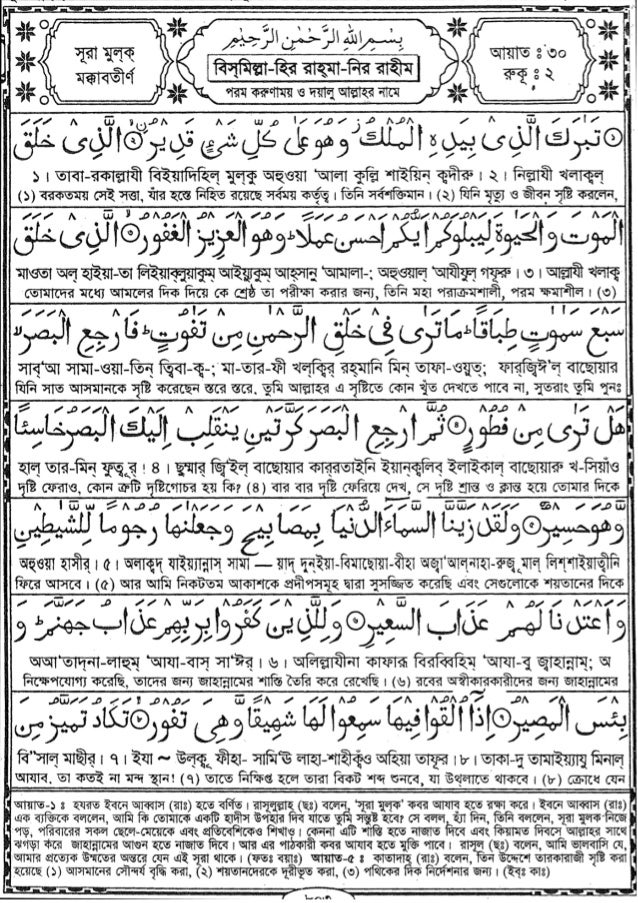 সূরা মুল্‌ক্
মক্কাবতীর্ণ
بِسْمِ اللهِ الرَّحْمٰنِ الرَّحِيْمِ
বিস্‌মিল্লা-হির রাহ্‌মা-নির রাহীম
পরম করুণাময় ও দয়ালু আল্লাহর নামে
আয়াত : ৩০
রুকূ : ২
تَبٰرَكَ الَّذِىْ بِيَدِهِ الْمُلْكُ ز وَهُوَ عَلٰى كُلِّ شَىْءٍ قَدِيْرُۨ ۝ الَّذِىْ خَلَقَ
১। তাবা-রকাল্লাযী বিইয়াদিহিল্ মুল্‌কু অহুওয়া ‘আলা কুল্লি শাইয়িন্ ক্বদীরু। ২। নিল্লাযী খলাক্বল্
(১) বরকতময় সেই সত্তা, যাঁর হস্তে নিহিত রয়েছে সর্বময় কর্তৃত্ব। তিনি সর্বশক্তিমান। (২) যিনি মৃত্যু ও জীবন সৃষ্টি করলেন,
الْمَوْتَ وَالْحَيٰوةَ لِيَبْلُوَكُمْ اَيُّكُمْ اَحْسَنُ عَمَلًا ط وَهُوَ الْعَزِيْزُ الْغَفُوْرُ ۝ الَّذِىْ خَلَقَ
মাওতা অল্ হাইয়া-তা লিইয়াব্‌লুওয়াকুম্ আইয়্যুকুম্ আহ্‌সানু ‘আমালা-; অহুওয়াল্ ‘আযীযুল্ গফূরু। ৩। আল্লাযী খলাক্ব
তোমাদের মধ্যে আমলের দিক দিয়ে কে শ্রেষ্ঠ তা পরীক্ষা করার জন্য, তিনি মহা পরাক্রমশালী, পরম ক্ষমাশীল। (৩)
سَبْعَ سَمٰوٰتٍ طِبَاقًا ط مَا تَرٰى فِىْ خَلْقِ الرَّحْمٰنِ مِنْ تَفٰوُتٍ ط فَارْجِعِ الْبَصَرَ لا
সাব্‌‘আ সামা-ওয়া-তিন্ ত্বিবা-ক্ব-; মা-তার-ফী খল্‌ক্বির্ রহ্‌মানি মিন্ তাফা-ওয়ুত্; ফার্‌জ্বি‘ঈল্ বাছোয়ার
যিনি সাত আসমানকে সৃষ্টি করেছেন স্তরে স্তরে, তুমি আল্লাহর এ সৃষ্টিতে কোন খুঁত দেখতে পাবে না, সুতরাং তুমি পুনঃ
هَلْ تَرٰى مِنْ فُطُوْرٍ ۝ ثُمَّ ارْجِعِ الْبَصَرَ كَرَّتَيْنِ يَنْقَلِبْ اِلَيْكَ الْبَصَرُ خَاسِئًا
হাল্ তার-মিন্ ফুত্বূর্! ৪। ছুম্মার্ জ্বি‘ইল্ বাছোয়ার কার্‌রতাইনি ইয়ান্‌ক্বলিব্ ইলাইকাল্ বাছোয়ারু খ-সিয়াঁও
দৃষ্টি ফেরাও, কোন ত্রুটি দৃষ্টিগোচর হয় কি? (৪) বার বার দৃষ্টি ফেরিয়ে দেখ, সে দৃষ্টি শ্রান্ত ও ক্লান্ত হয়ে তোমার দিকে
وَّهُوَ حَسِيْرٌ ۝ وَلَقَدْ زَيَّنَّا السَّمَاءَ الدُّنْيَا بِمَصَابِيْحَ وَجَعَلْنٰهَا رُجُوْمًا لِّلشَّيٰطِيْنِ
অহুওয়া হাসীর্। ৫। অলাক্বদ্ যাইয়্যান্নাস্ সামা — য়াদ্ দুন্‌ইয়া-বিমাছোয়া-বীহা অজ্বা‘আল্‌নাহা-রুজূমাল্ লিশ্‌শাইয়াত্বীনি
ফিরে আসবে। (৫) আর আমি নিকটতম আকাশকে প্রদীপসমূহ দ্বারা সুসজ্জিত করেছি এবং সেগুলোকে শয়তানের দিকে
وَاَعْتَدْنَا لَهُمْ عَذَابَ السَّعِيْرِ ۝ وَلِلَّذِيْنَ كَفَرُوْا بِرَبِّهِمْ عَذَابُ جَهَنَّمَ ط وَ
অআ‘তাদ্‌না-লাহুম্ ‘আযা-বাস্ সা‘ঈর্। ৬। অলিল্লাযীনা কাফারূ বিরব্বিহিম্ ‘আযা-বু জ্বাহান্নাম্; অ
নিক্ষেপযোগ্য করেছি, তাদের জন্য জাহান্নামের শাস্তি তৈরি করে রেখেছি। (৬) রবের অস্বীকারকারীদের জন্য জাহান্নামের
بِئْسَ الْمَصِيْرُ ۝ اِذَا اُلْقُوْا فِيْهَا سَمِعُوْا لَهَا شَهِيْقًا وَّهِىَ تَفُوْرُ ۝ تَكَادُ تَمَيَّزُ مِنَ
বি’’সাল্ মাছীর্। ৭। ইযা ~ উল্‌কূ ফীহা- সামি‘ঊ লাহা-শাহীক্বাঁও অহিয়া তাফূর। ৮। তাকা-দু তামাইয়্যাযু মিনাল্
আযাব, তা কতই না মন্দ স্থান! (৭) তাতে নিক্ষিপ্ত হলে তারা বিকট শব্দ শুনবে, যা উথলাতে থাকবে। (৮) ক্রোধে যেন
আয়াত-১ ঃ হযরত ইবনে আব্বাস (রাঃ) হতে বর্ণিত। রাসূলুল্লাহ (ছঃ) বলেন, ‘সূরা মুল্‌ক’ কবর আযাব হতে রক্ষা করে। ইবনে আব্বাস (রাঃ)
এক ব্যক্তিকে বললেন, আমি কি তোমাকে একটি হাদীস উপহার দিব যাতে তুমি সন্তুষ্ট হবে? সে বলল, হ্যাঁ দিন, তিনি বললেন, সূরা মুলক নিজে
পড়, পরিবারের সকল ছেলে-মেয়েকে এবং প্রতিবেশিকেও শিখাও। কেননা এটি শাস্তি হতে নাজাত দিবে এবং কিয়ামত দিবসে আল্লাহর সাথে
ঝগড়া করে জাহান্নামের আগুন হতে নাজাত দিবে। আর এর পাঠকারী কবর আযাব হতে মুক্তি পাবে। রাসূল (ছঃ) বলেন, আমি ভালবাসি যে,
আমার প্রত্যেক উম্মতের অন্তরে যেন এই সূরা থাকে। (ফতঃ বয়াঃ) আয়াত-৫ ঃ কাতাদাহ্ (রাঃ) বলেন, তিন উদ্দেশে তারকারাজী সৃষ্টি করা
হয়েছে (১) আসমানের সৌন্দর্য বৃদ্ধি করা, (২) শয়তানদেরকে দূরীভূত করা, (৩) পথিকের দিক নির্দেশনার জন্য। (ইবৃঃ কাঃ)